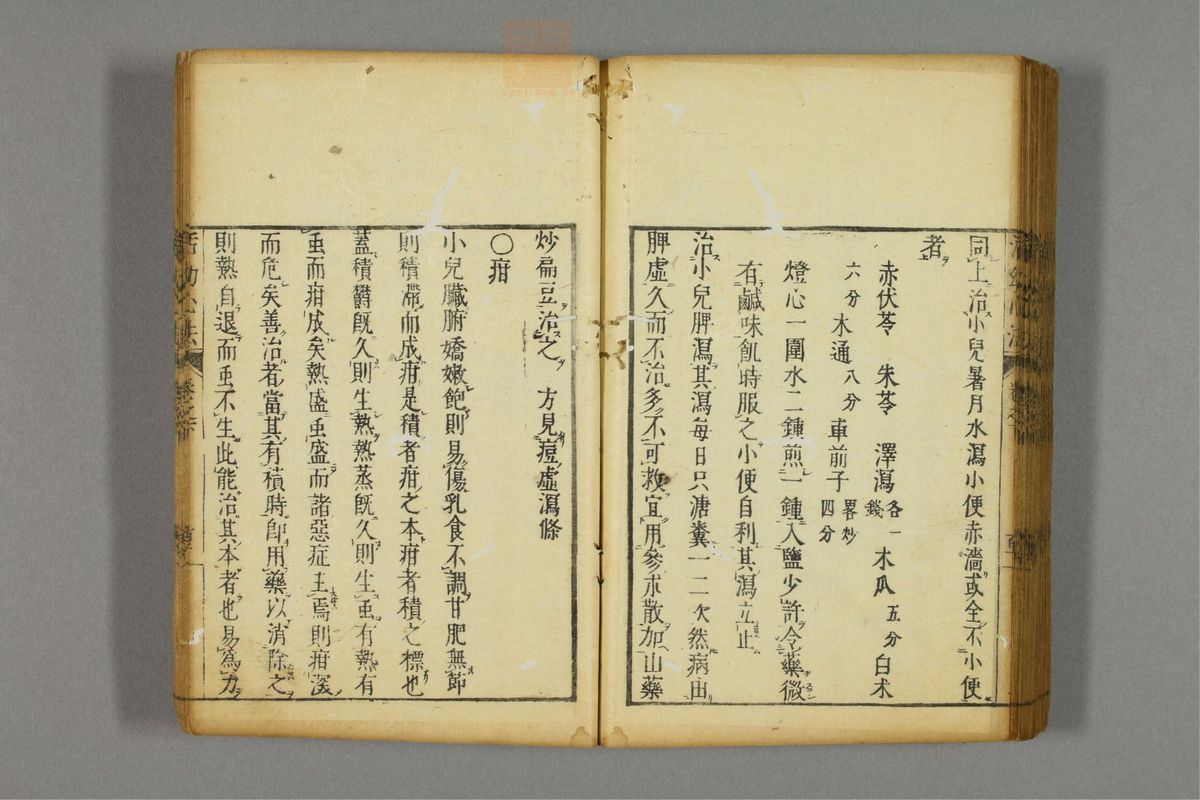 同上治小兒暑月水瀉小便赤濇或全不小便
者
赤伏苓　朱苓　澤瀉各一錢　木瓜五分　白朮
六分　木通八分　車前子畧炒四分
燈心一圍水二鍾煎一鍾入鹽少許令藥微
有鹹味飢時服之小便自利其瀉立止
治小兒脾瀉其瀉每日只溏糞一二次然病由
脾虛久而不治多不可救宜用參朮散加山藥
炒扁豆治之　方見痘虛瀉條
〇疳
小兒臟腑嬌嫩飽則易傷乳食不調甘肥無節
則積滯而成疳是積者疳之本疳者積之標也
蓋積欝既久則生熱熱蒸既久則生䖝有熱有
䖝而疳成矣熱盛䖝盛而諸惡症生焉則疳深
而危矣善治者當其有積時即用藥以消除之
則熱自退而䖝不生此能治其本者也易爲力
活幼心法